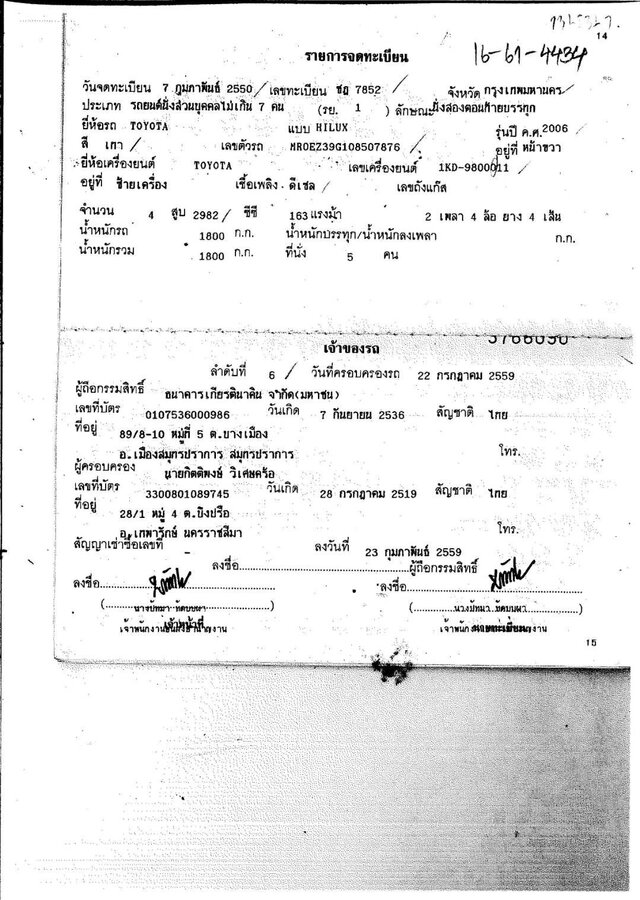 14
16-61-4434
รายการจดทะเบียน
วันจดทะเบียน 7 กุมภาพันธ์ 2550 / เลขทะเบียน 7852 / จังหวัด กรุงเทพมหานคร
ประเภท รถยนต์นั่งส่วนบุคคลไม่เกิน 7 คน (รย. 1 ) ลักษณะ นั่งสองตอนท้ายบรรทุก
ยี่ห้อรถ TOYOTA แบบ HILUX รุ่นปี ค.ศ. 2006 /
สี เทา / เลขตัวรถ MR0EZ39G108507876 / อยู่ที่ หน้าขวา
ยี่ห้อเครื่องยนต์ TOYOTA เลขเครื่องยนต์ 1KD-9800011 /
อยู่ที่ ซ้ายเครื่อง เชื้อเพลิง ดีเซล / เลขถังแก๊ส
จำนวน 4 สูบ 2982 / ซีซี 163 แรงม้า 2 เพลา 4 ล้อ ยาง 4 เส้น
น้ำหนักรถ 1800 ก.ก. น้ำหนักบรรทุก/น้ำหนักลงเพลา ก.ก.
น้ำหนักรวม 1800 ก.ก. ที่นั่ง 5 คน
เจ้าของรถ
ลำดับที่ 6 / วันที่ครอบครองรถ 22 กรกฎาคม 2559
ผู้ถือกรรมสิทธิ์ ธนาคารเกียรตินาคิน จำกัด(มหาชน)
เลขที่บัตร 0107536000986 วันเกิด 7 กันยายน 2536 สัญชาติ ไทย
ที่อยู่ 89/8-10 หมู่ที่ 5 ต.บางเมือง
อ.เมืองสมุทรปราการ สมุทรปราการ โทร.
ผู้ครอบครอง นายกิตติพงษ์ วิเศษคร้อ
เลขที่บัตร 3300801089745 วันเกิด 28 กรกฎาคม 2519 สัญชาติ ไทย
ที่อยู่ 28/1 หมู่ 4 ต.บึงปรือ
อ.เทพารักษ์ นครราชสีมา โทร.
สัญญาเช่าซื้อเลขที่ - ลงวันที่ 23 กุมภาพันธ์ 2559
ลงชื่อ ผู้ถือกรรมสิทธิ์
ลงชื่อ ลงชื่อ
เจ้าหน้าที่ นายทะเบียน
15